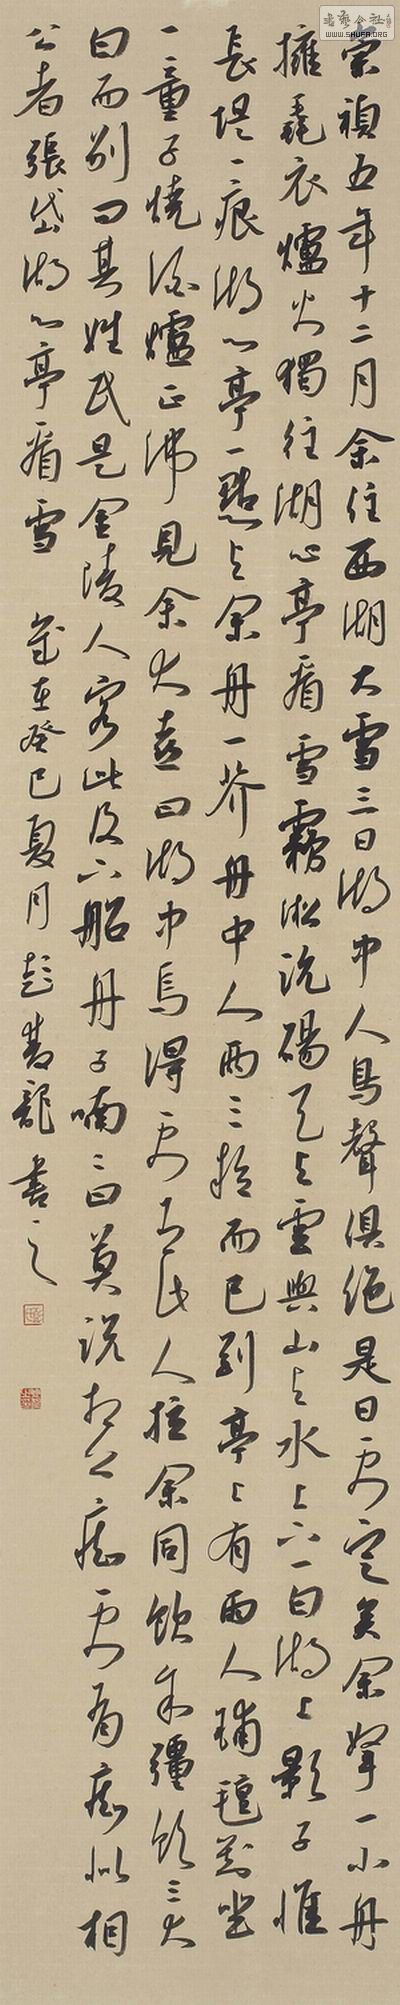 崇禎五年十二月余住西湖大雪三日湖中人鳥聲俱絕是日更定矣余挐一小舟
擁毳衣爐火獨往湖心亭看雪霧淞沆碭天与雲與山与水上下一白湖上影子惟
長堤一痕湖心亭一點与余舟一芥舟中人兩三粒而已到亭上有兩人鋪氈對坐
一童子燒酒爐正沸見余大喜曰湖中焉得更有此人拉余同飲余彊飲三大
白而別問其姓氏是金陵人客此及下船舟子喃〻曰莫説相公癡更有癡似相
公者張岱湖心亭看雪 歲在癸巳夏月彭龍書之
WWW.SHUFA.ORG